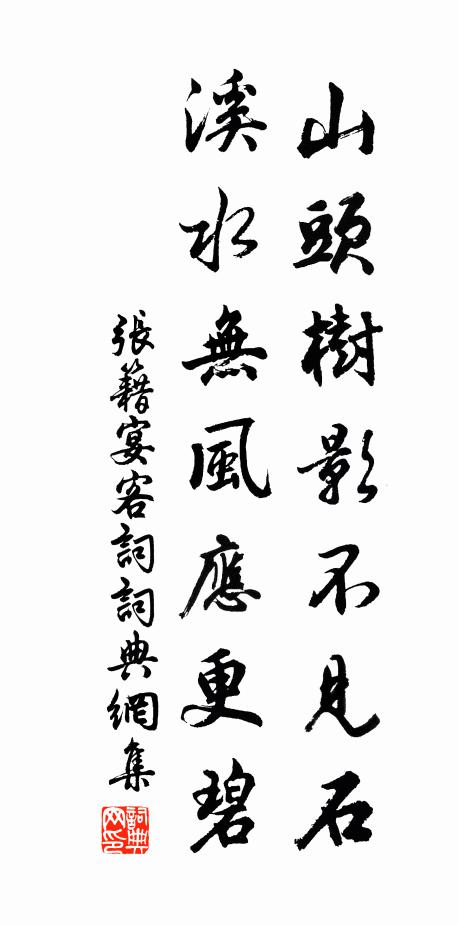 山頭樹影不見石
溪水無風應更碧
張籍宴客詞詞典網集
詞典网印